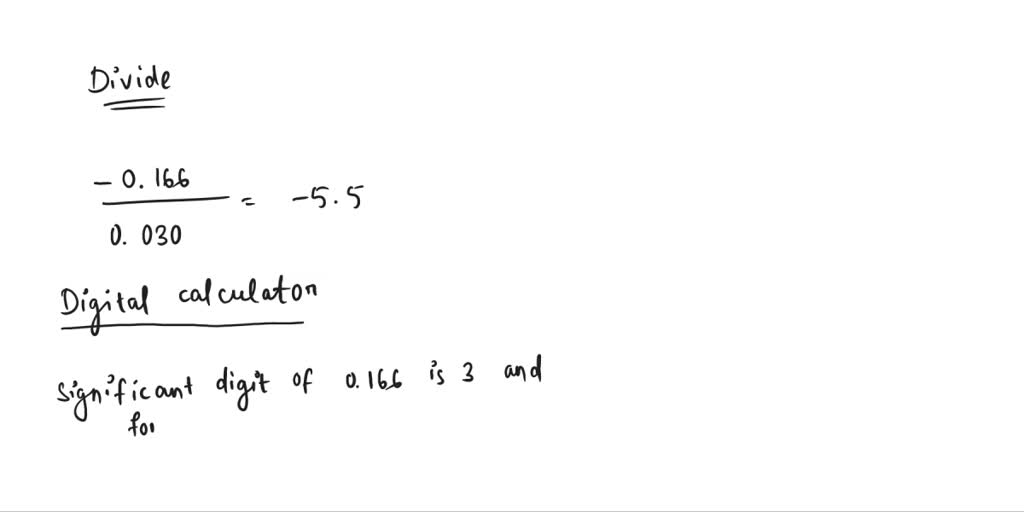 Divide
- 0.166
= -5.5
0.030
Digital calculator
significant digit of 0.166 is 3 and
for